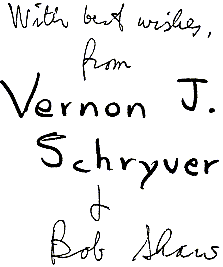 With best wishes,
from
Vernon J.
Schryver
&
Bob Shaw